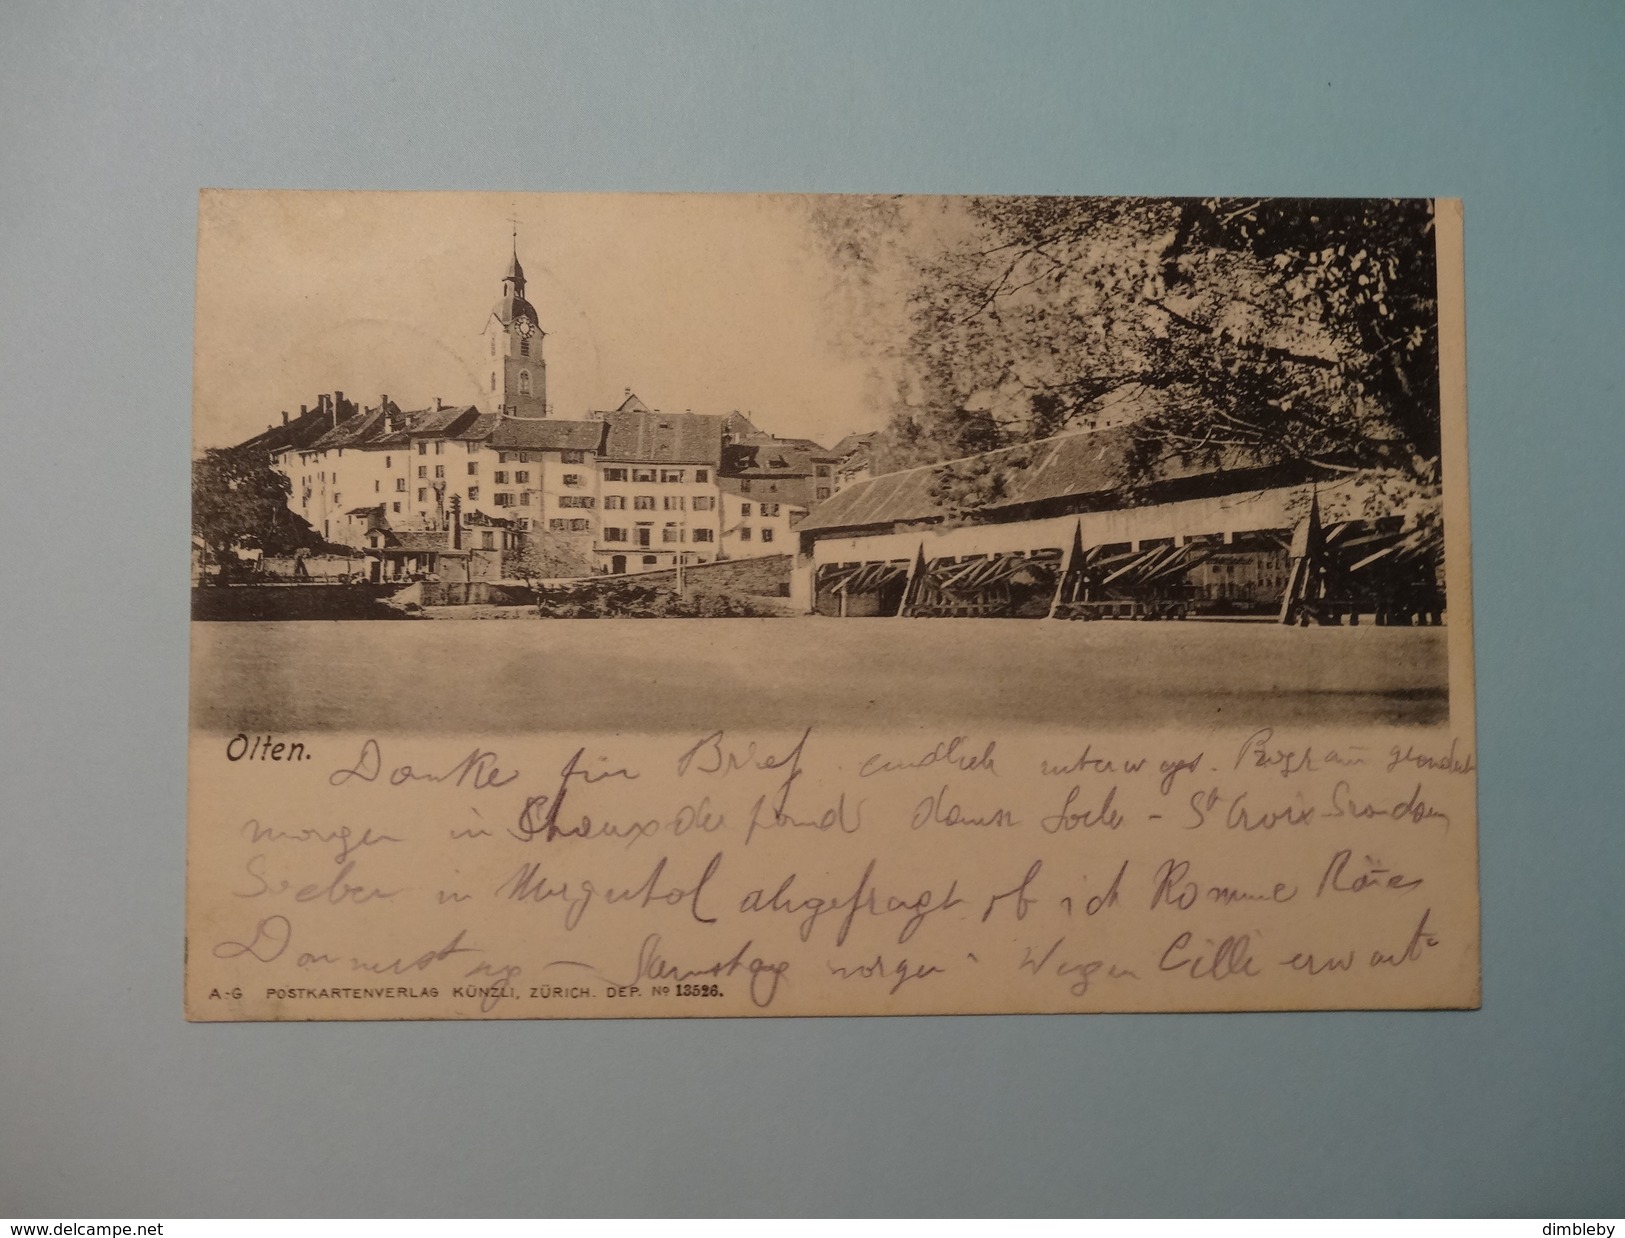 Olten.
Danke für Brief. endlich unterwegs. Programm geändert
morgen in Chaux de fonds dann Locle - St Croix-
Soeben in Murgental abgefragt ob ich komme
Donnerstag - Samstag morgen. Wegen Cilli erwart
A.-G POSTKARTENVERLAG KÜNZLI, ZÜRICH. DEP. No 13526.
www.delcampe.net
dimbleby